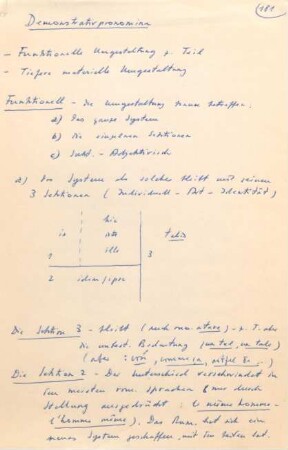 181
Demonstrativpronomina
- Funktionelle Umgestaltung z. Teil
- Tiefere materielle Umgestaltung
Funktionell - die Umgestaltung kann betreffen:
a) Das ganze System
b) Die einzelnen Sektionen
c) Subst. - Adjektivisch
a) Das System als solches bleibt und seinen
3 Sektionen (Individuell - Art - Identität)
hic
is iste talis
ille
1 3
2 idem/ipse
Die Sektion 3 - bleibt (auch rum. atare) - z. T. aber
die unbest. Bedeutung (un tel, un tal)
(aber :
Die Sektion 2 - Der Unterschied verschwindet in
den meisten rom. Sprachen (nur durch
Stellung ausgedrückt: le même homme -
l'homme même). Das Rum. hat sich ein
neues System geschaffen, mit den Seiten